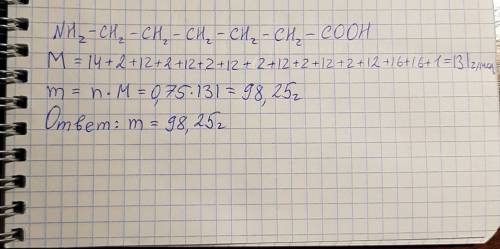 NH₂-CH₂-CH₂-CH₂-CH₂-CH₂-COOH
M = 14+2+12+2+12+2+12+2+12+2+12+2+12+16+16+1=131г/моль
m = n·M = 0,75·131 = 98,25г
Ответ: m = 98,25г